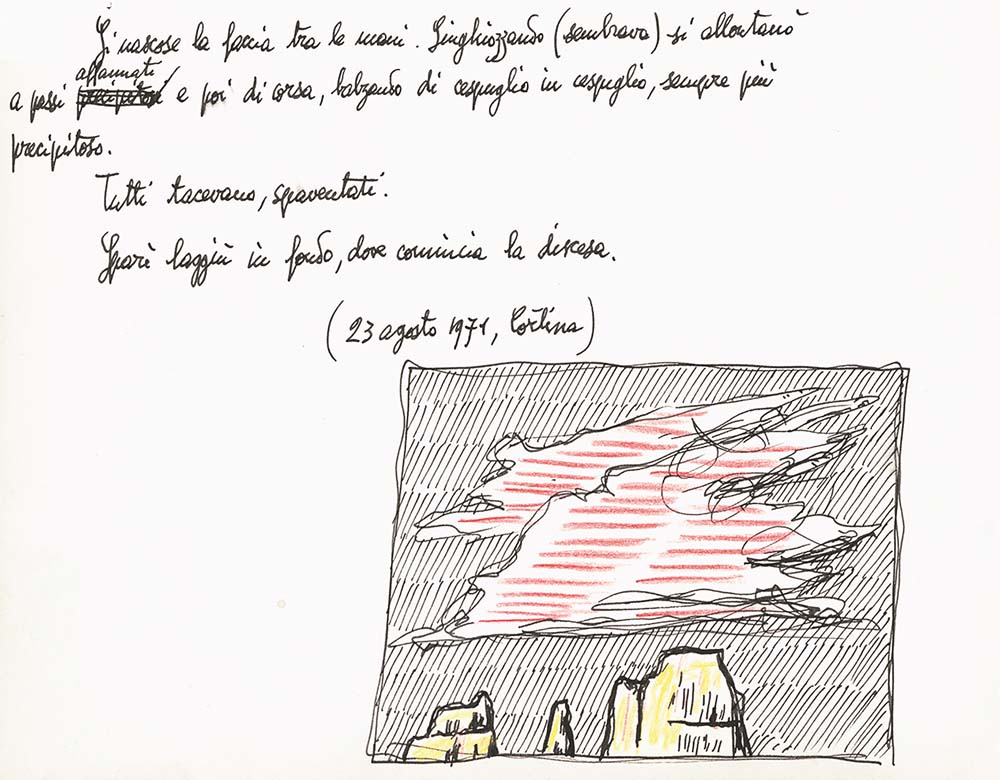 Si nascose la faccia tra le mani. Singhiozzando (sembrava) si allontanò
affannati
a passi e poi di corsa, balzando di cespuglio in cespuglio, sempre più
precipitoso.
Tutti tacevano, spaventati.
Sparì laggiù in fondo, dove comincia la discesa.
(23 agosto 1971, Cortina)